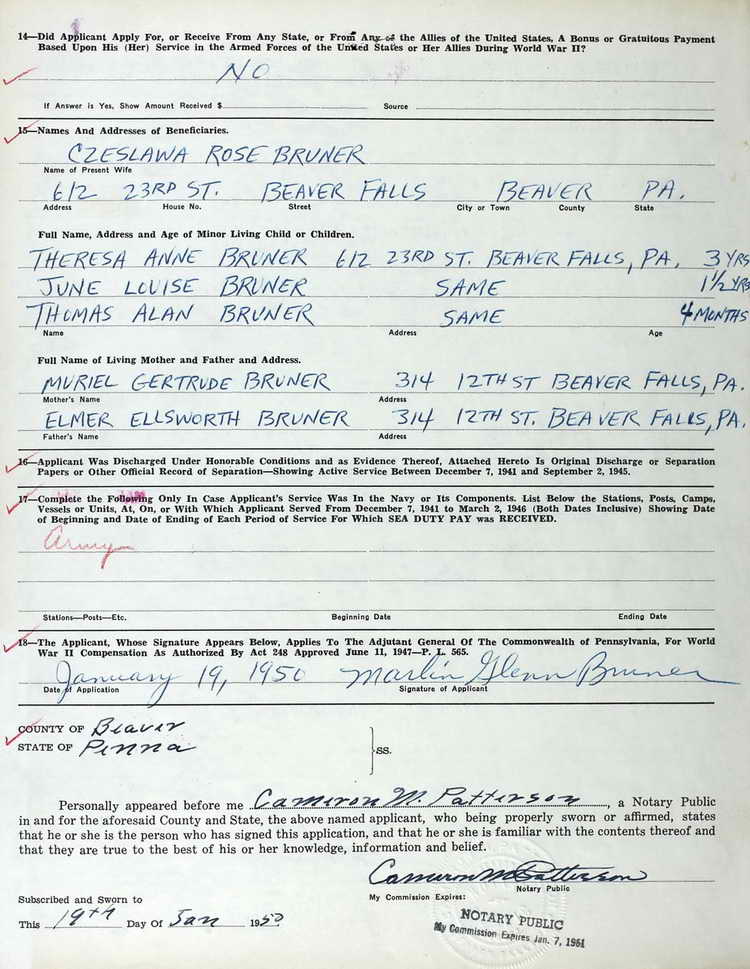 14—Did Applicant Apply For, or Receive From Any State, or From Any of the Allies of the United States, A Bonus or Gratuitous Payment
Based Upon His (Her) Service in the Armed Forces of the United States or Her Allies During World War II?
NO
If Answer is Yes, Show Amount Received $ Source
15—Names And Addresses of Beneficiaries.
CZESLAWA ROSE BRUNER
Name of Present Wife
612 23RD ST. BEAVER FALLS BEAVER PA.
Address House No. Street City or Town County State
Full Name, Address and Age of Minor Living Child or Children.
THERESA ANNE BRUNER 612 23RD ST. BEAVER FALLS, PA. 3 YRS
JUNE LOUISE BRUNER SAME 1½ YRS
THOMAS ALAN BRUNER SAME 4 MONTHS
Name Address Age
Full Name of Living Mother and Father and Address.
MURIEL GERTRUDE BRUNER 314 12TH ST BEAVER FALLS, PA.
Mother's Name Address
ELMER ELLSWORTH BRUNER 314 12TH ST. BEAVER FALLS, PA.
Father's Name Address
16—Applicant Was Discharged Under Honorable Conditions and as Evidence Thereof, Attached Hereto Is Original Discharge or Separation
Papers or Other Official Record of Separation—Showing Active Service Between December 7, 1941 and September 2, 1945.
17—Complete the Following Only In Case Applicant's Service Was In the Navy or Its Components. List Below the Stations, Posts, Camps,
Vessels or Units, At, On, or With Which Applicant Served From December 7, 1941 to March 2, 1946 (Both Dates Inclusive) Showing Date
of Beginning and Date of Ending of Each Period of Service For Which SEA DUTY PAY was RECEIVED.
Army
Stations—Posts—Etc. Beginning Date Ending Date
18—The Applicant, Whose Signature Appears Below, Applies To The Adjutant General Of The Commonwealth of Pennsylvania, For World
War II Compensation As Authorized By Act 248 Approved June 11, 1947—P. L. 565.
January 19, 1950 Marlin Glenn Bruner
Date of Application Signature of Applicant
COUNTY OF Beaver
STATE OF Penna
SS.
Personally appeared before me Cameron M. Patterson, a Notary Public
in and for the aforesaid County and State, the above named applicant, who being properly sworn or affirmed, states
that he or she is the person who has signed this application, and that he or she is familiar with the contents thereof and
that they are true to the best of his or her knowledge, information and belief.
Cameron M Patterson
Notary Public
Subscribed and Sworn to My Commission Expires:
This 19th Day Of Jan 1950
NOTARY PUBLIC
My Commission Expires Jan. 7, 1951